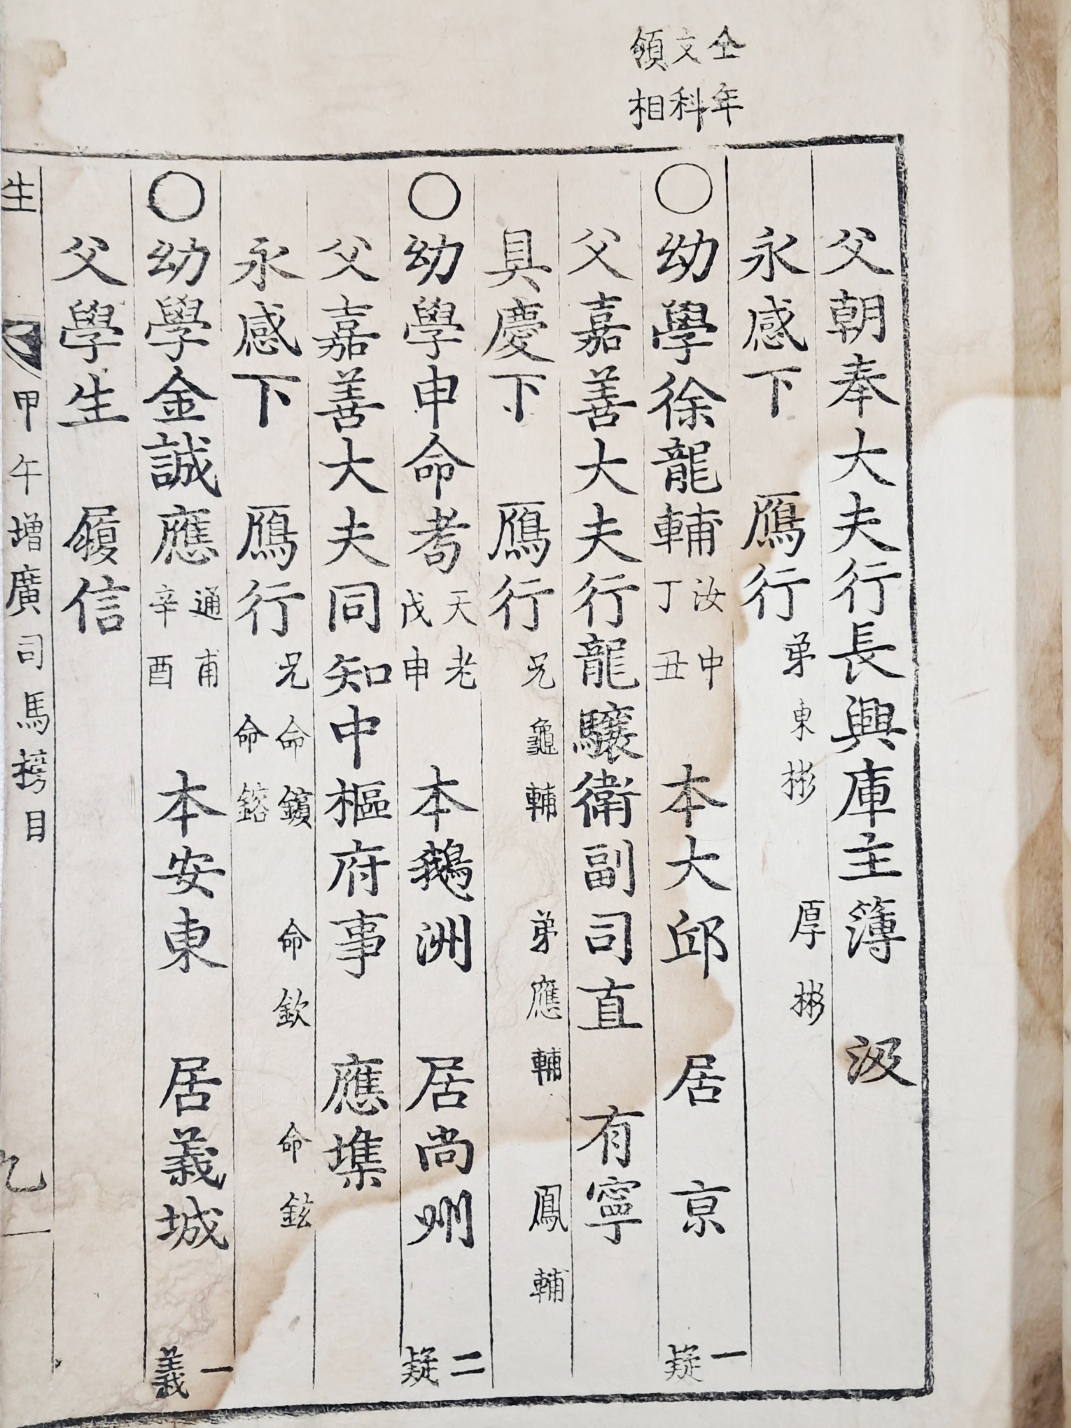 仝年
文科
領相
父朝奉大夫行長興庫主簿 汲
永感下 鴈行 弟東彬 厚彬
○幼學徐龍輔 汝中 丁丑 本大邱 居京 一疑
父嘉善大夫行龍驤衛副司直 有寧
具慶下 鴈行 兄龜輔 弟應輔 鳳輔
○幼學申命耇 天老 戊申 本鵝洲 居尚州 二疑
父嘉善大夫同知中樞府事 應㙫
永感下 鴈行 兄命鑌 命鎔 命欽 命鉉
○幼學金誠應 通甫 辛酉 本安東 居義城 一義
父學生 履信
生 甲午增廣司馬榜目 九